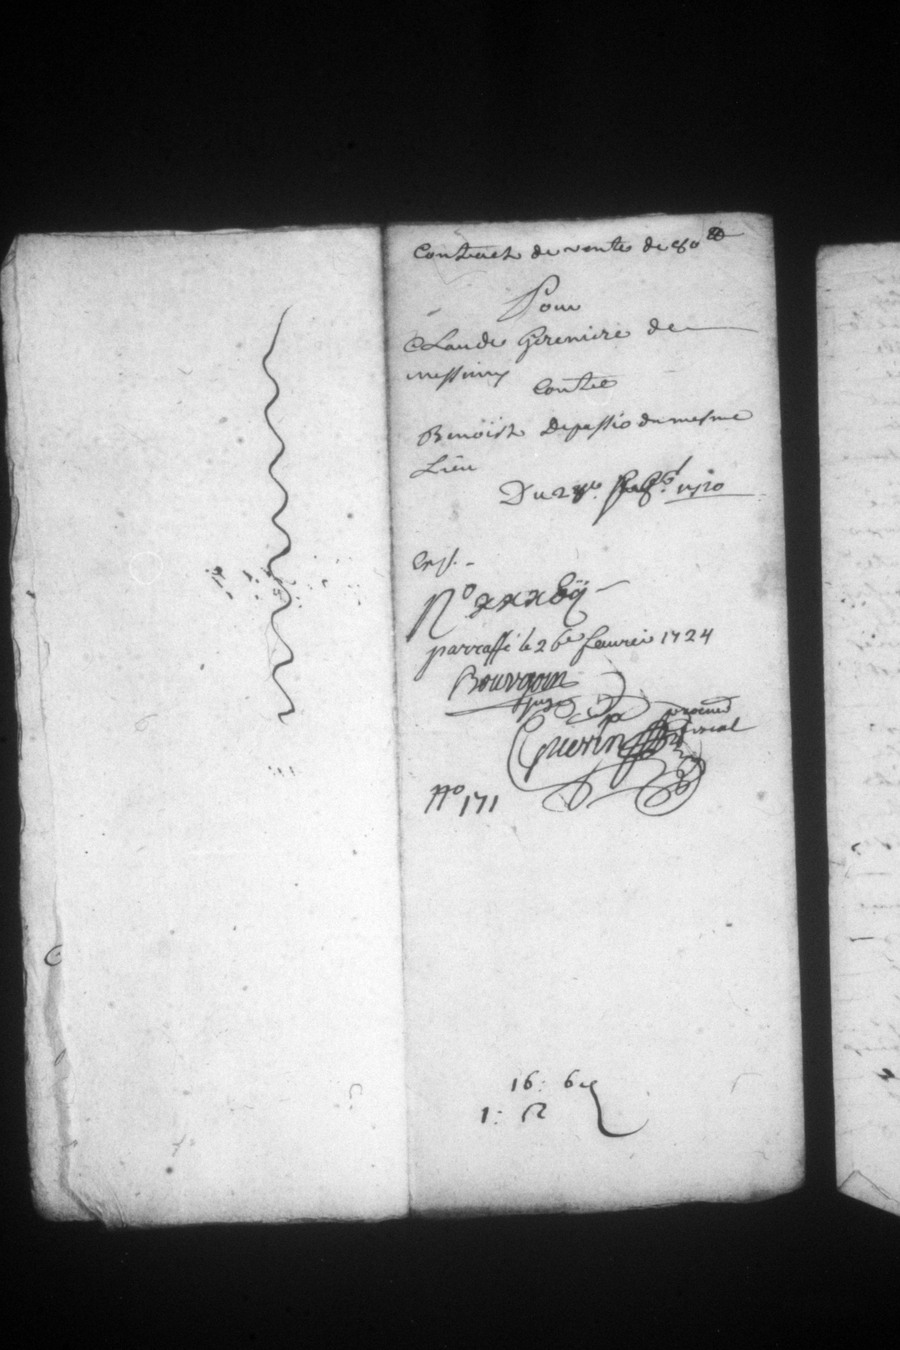 Contract de vente de 80 ₶
Pour
Claude Greniere de
messimy
Contre
Benoist Depassio du mesme
Lieu
Du 1720
Exp.
No xxxbij
parraffé le 26e feurier 1724
Bourgoin
juge
Guerin procureur
fiscal
No 171
16: 6
1: